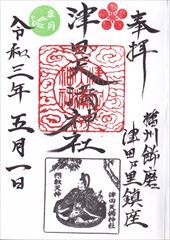 奉拝
播州飾磨
津田の里鎮座
津田天満神社
皐月
令和三年 五月一日
津田天満神社